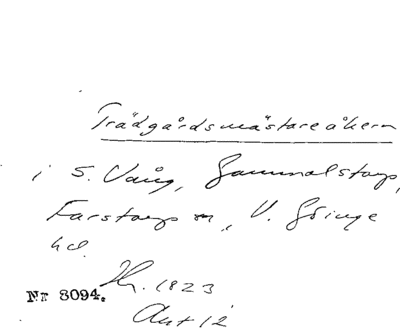 Trädgårdsmästareåkern
i S. Vång, Gammalstorp,
Farstorps sn, V. Göinge
hd.
Hr. 1823
Nr 8094.
Akt 12